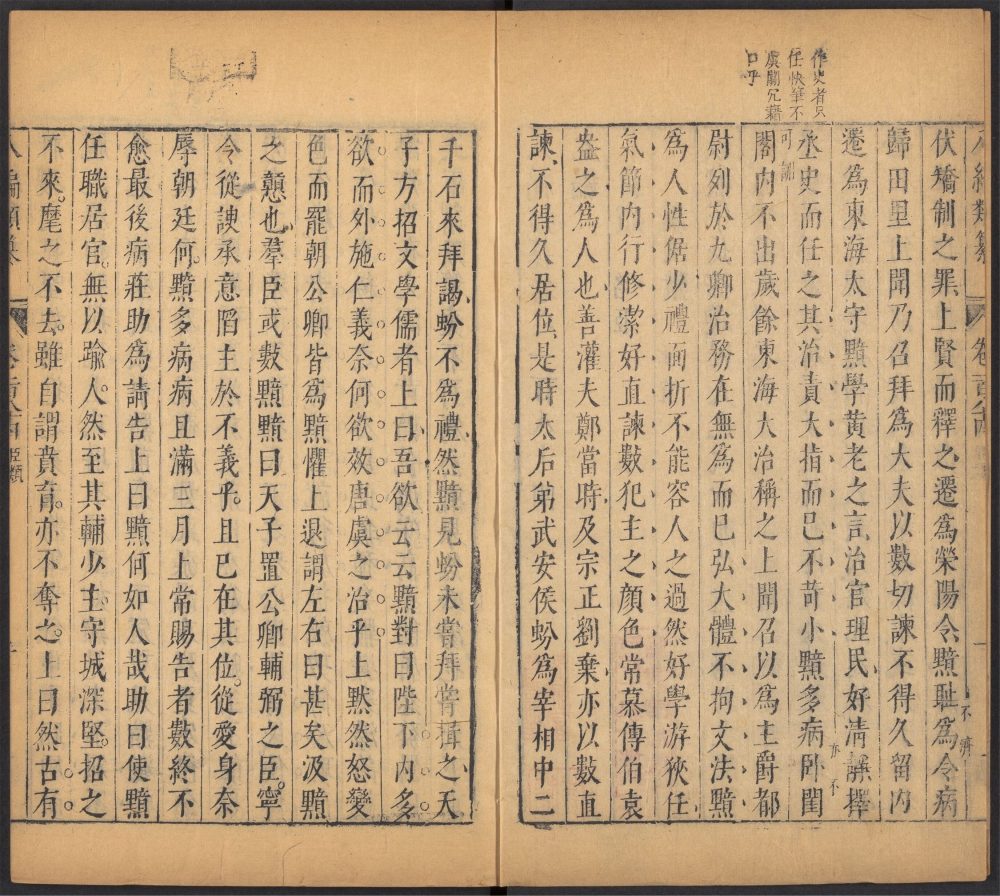 作史者只
任快筆不
虞關冗藉
口乎
伏矯制之罪上賢而釋之遷爲滎陽令黯恥爲令病
歸田里上聞乃召拜爲大夫以數切諫不得久留內
遷爲東海太守黯學黃老之言治官理民好清靜擇
丞史而任之其治責大指而已不苛小黯多病臥閨
閤內不出歲餘東海大治稱之上聞召以爲主爵都
尉列於九卿治務在無爲而已弘大體不拘文法黯
爲人性倨少禮面折不能容人之過然好學游狹任
氣節內行修潔好直諫數犯主之顏色常慕傅伯袁
盎之爲人也善灌夫鄭當時及宗正劉棄亦以數直
諫不得久居位是時太后弟武安侯蚡爲宰相中二
千石來拜謁蚡不爲禮然黯見蚡未嘗拜嘗揖之天
子方招文學儒者上曰吾欲云云黯對曰陛下內多
欲而外施仁義奈何欲效唐虞之治乎上黙然怒變
色而罷朝公卿皆爲黯懼上退謂左右曰甚矣汲黯
之戇也羣臣或數黯黯曰天子置公卿輔弼之臣寧
令從諛承意䧟主於不義乎且已在其位從愛身奈
辱朝廷何黯多病病且滿三月上常賜告者數終不
愈最後病莊助爲請告上曰黯何如人哉助曰使黯
任職居官無以踰人然至其輔少主守城深堅招之
不來麾之不去雖自謂賁育亦不奪之上曰然古有